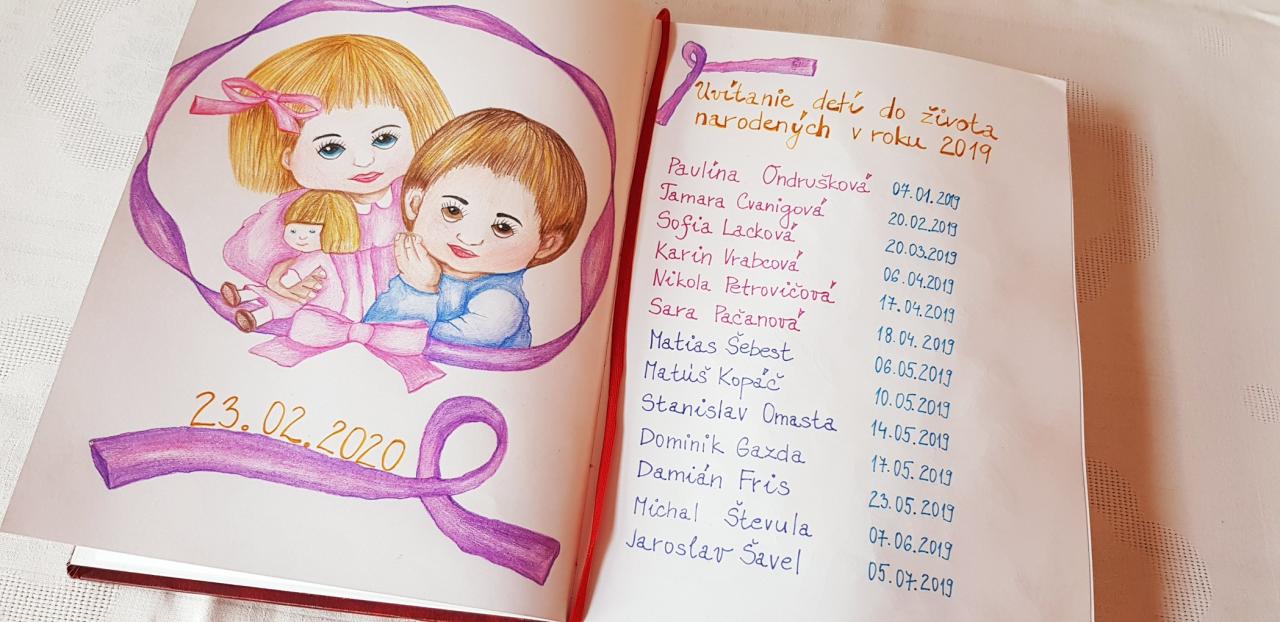 23.02.2020
Uvítanie detí do života
narodených v roku 2019
Paulína Ondrušková 07.01.2019
Tamara Cvanigová 20.02.2019
Sofia Lacková 20.03.2019
Karin Vrabcová 06.04.2019
Nikola Petrovičová 17.04.2019
Sara Pačanová 18.04.2019
Matias Šebest 06.05.2019
Matúš Kopáč 10.05.2019
Stanislav Omasta 14.05.2019
Dominik Gazda 17.05.2019
Damián Fris 23.05.2019
Michal Števula 07.06.2019
Jaroslav Šavel 05.07.2019